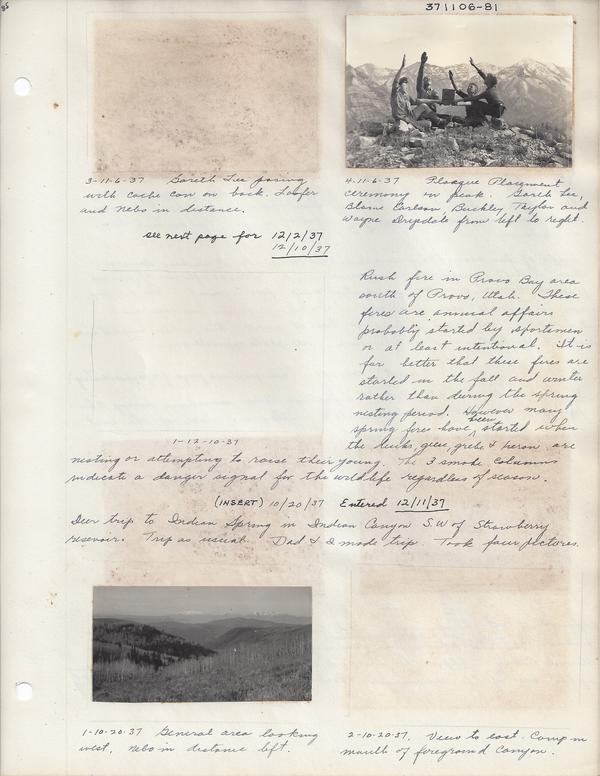 85
371106-81
3-11-6-37 Gareth Lee posing
with cache can on back. Loafer
and Nebo in distance.
4-11-6-37 Plaque Placement
ceremony on peak. Gareth Lee,
Blaine Carlson, Buckley Taylor and
Wayne from left to right.
see next page for 12/2/37
12/10/37
Rush fire in Provo Bay area
south of Provo, Utah. These
fires are annual affairs
probably started by sportsmen
or at least intentional. It is
far better that these fires are
started in the fall and winter
rather than during the spring
nesting period. However many
spring fires have been started when
the ducks, geese, grebe & heron are
1-12-10-37
nesting or attempting to raise their young. The 3 smoke columns
indicate a danger signal for the wildlife regardless of season.
(INSERT) 10/20/37 Entered 12/11/37
Deer trip to Indian Spring in Indian Canyon S.W. of Strawberry
reservoir. Trip as usual. Dad & I made trip. Took four pictures.
1-10-20-37 General area looking
west. Nebo in distance left.
2-10-20-37. View to east. Camp in
mouth of foreground canyon.